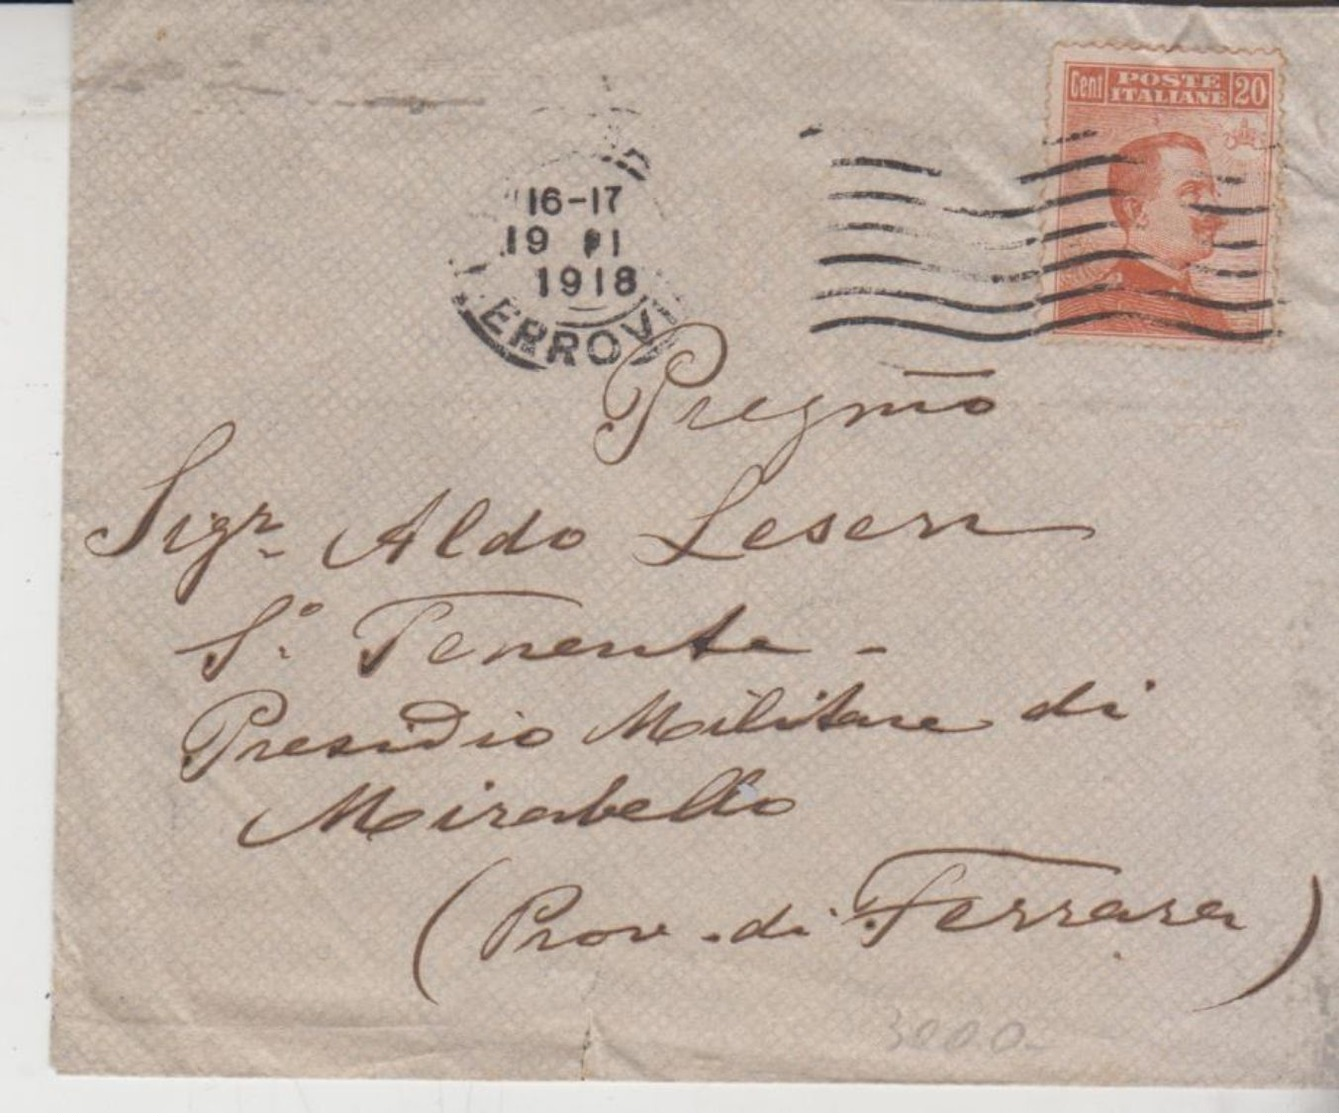 Cent POSTE ITALIANE 20
16-17
19 1918
ERROVI
Pregmo
Sigr Aldo
S.° Tenente -
Presidio Militare di
Mirabello
(Prov. di Ferrara)
3000